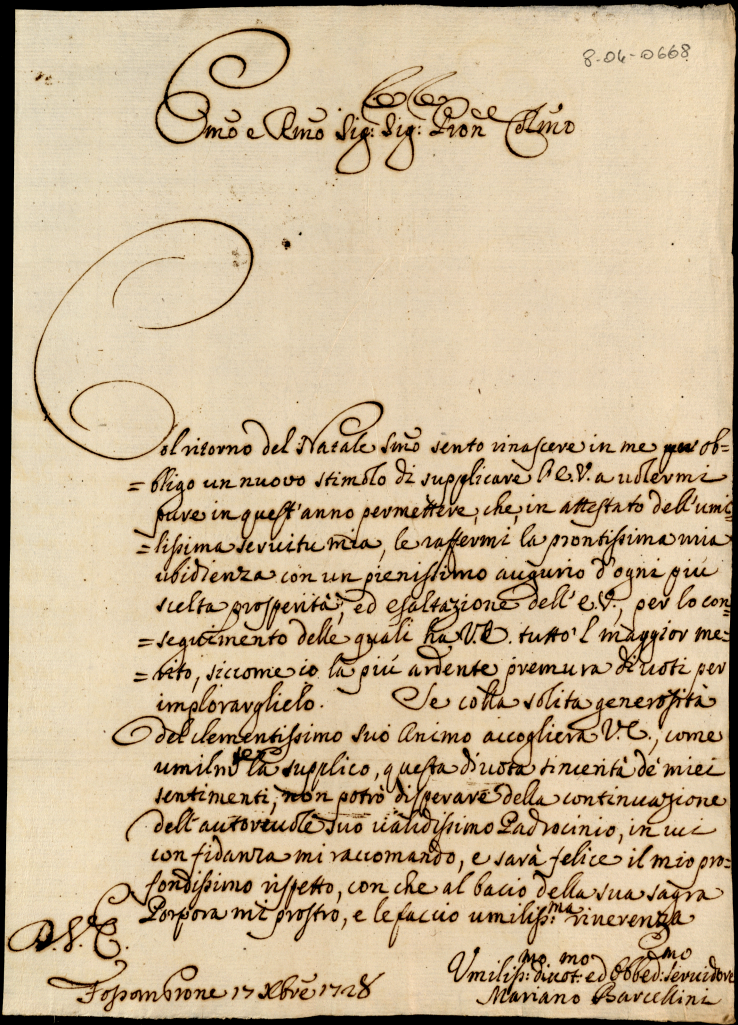 8-04-0668
Emo e Rmo Sig: Sig: Pron Colmo
Col ritorno del Natale Smo sento rinascere in me per ob=
=bligo un nuovo stimolo di supplicare l'E.V. a volermi
pure in quest'anno permettere, che, in attestato dell'umi=
=lissima servitù mia, le raffermi la prontissima mia
ubidienza con un pienissimo augurio d'ogni più
scelta prosperità, ed esaltazione dell'E.V., per lo con=
=seguimento delle quali ha V.E. tutto 'l maggior me=
=rito, siccome io la più ardente premura di voti per
implorarglielo. Se colla solita generosità
del clementissimo suo Animo accoglierà V.E., come
umilmte la supplico, questa divota sincerità de' miei
sentimenti, non potrò disperare della continuazione
dell'autorevole suo validissimo Padrocinio, in cui
con fidanza mi raccomando, e sarà felice il mio pro=
fondissimo rispetto, con che al bacio della sua sagra
Porpora mi prostro, e le faccio umiliss:ma riverenza
D.V.E.
Fossombrone 17 Xbre 1728
Umiliss:mo divot:mo ed Obbed:mo servidore
Mariano Barcellini